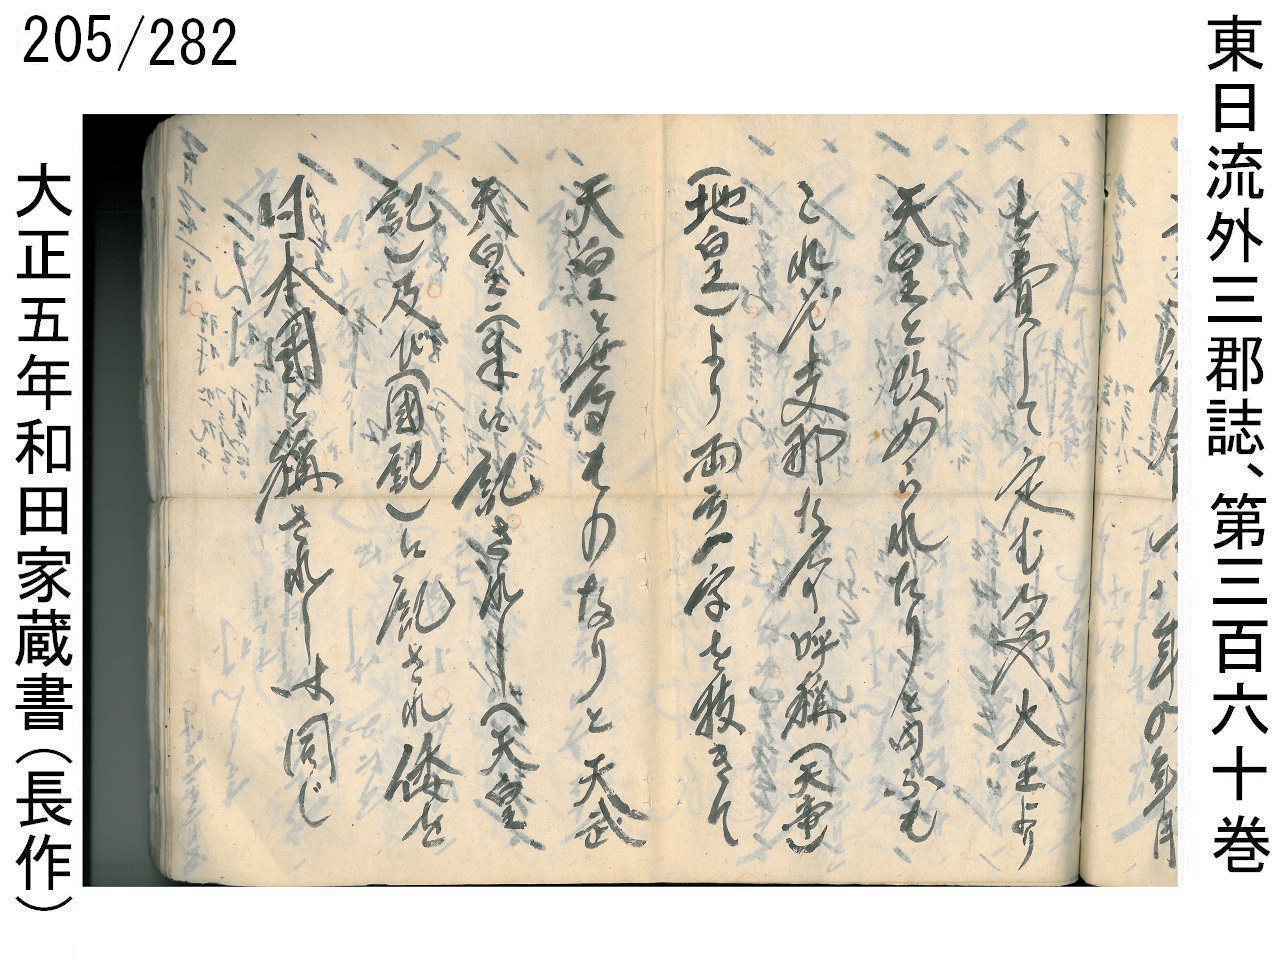 205/282
東日流外三郡誌、第三百六十巻
を費して定む處や大王より
天皇と改められたりと曰ふも
これぞ支那なる呼稱(天竜)
(地皇)より両者一字を抜きて
天皇とせるものなりと天武
天皇二年に記されし(天皇
記)及び(國記)に記され倭を
日本國と稱されしは同じ
大正五年和田家蔵書(長作)